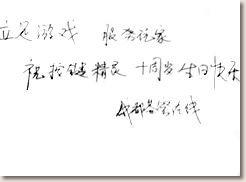 立足游戏 服务玩家
祝按键精灵 十周岁生日快乐
成都 在线